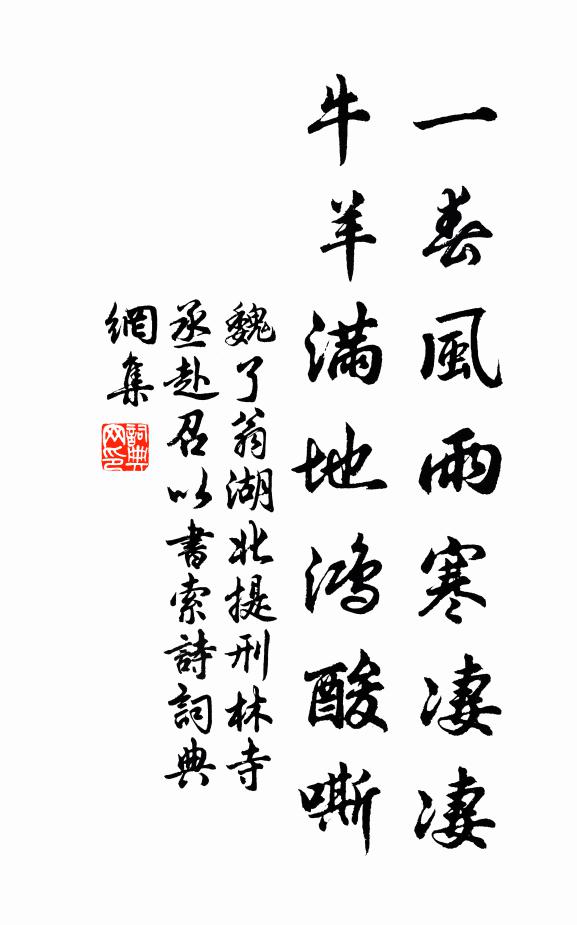 一春風雨寒凄凄
牛羊满地鴻酸嘶
魏了翁湖北提刑林寺
丞赴召以書索詩詞典
網集
詞典網印